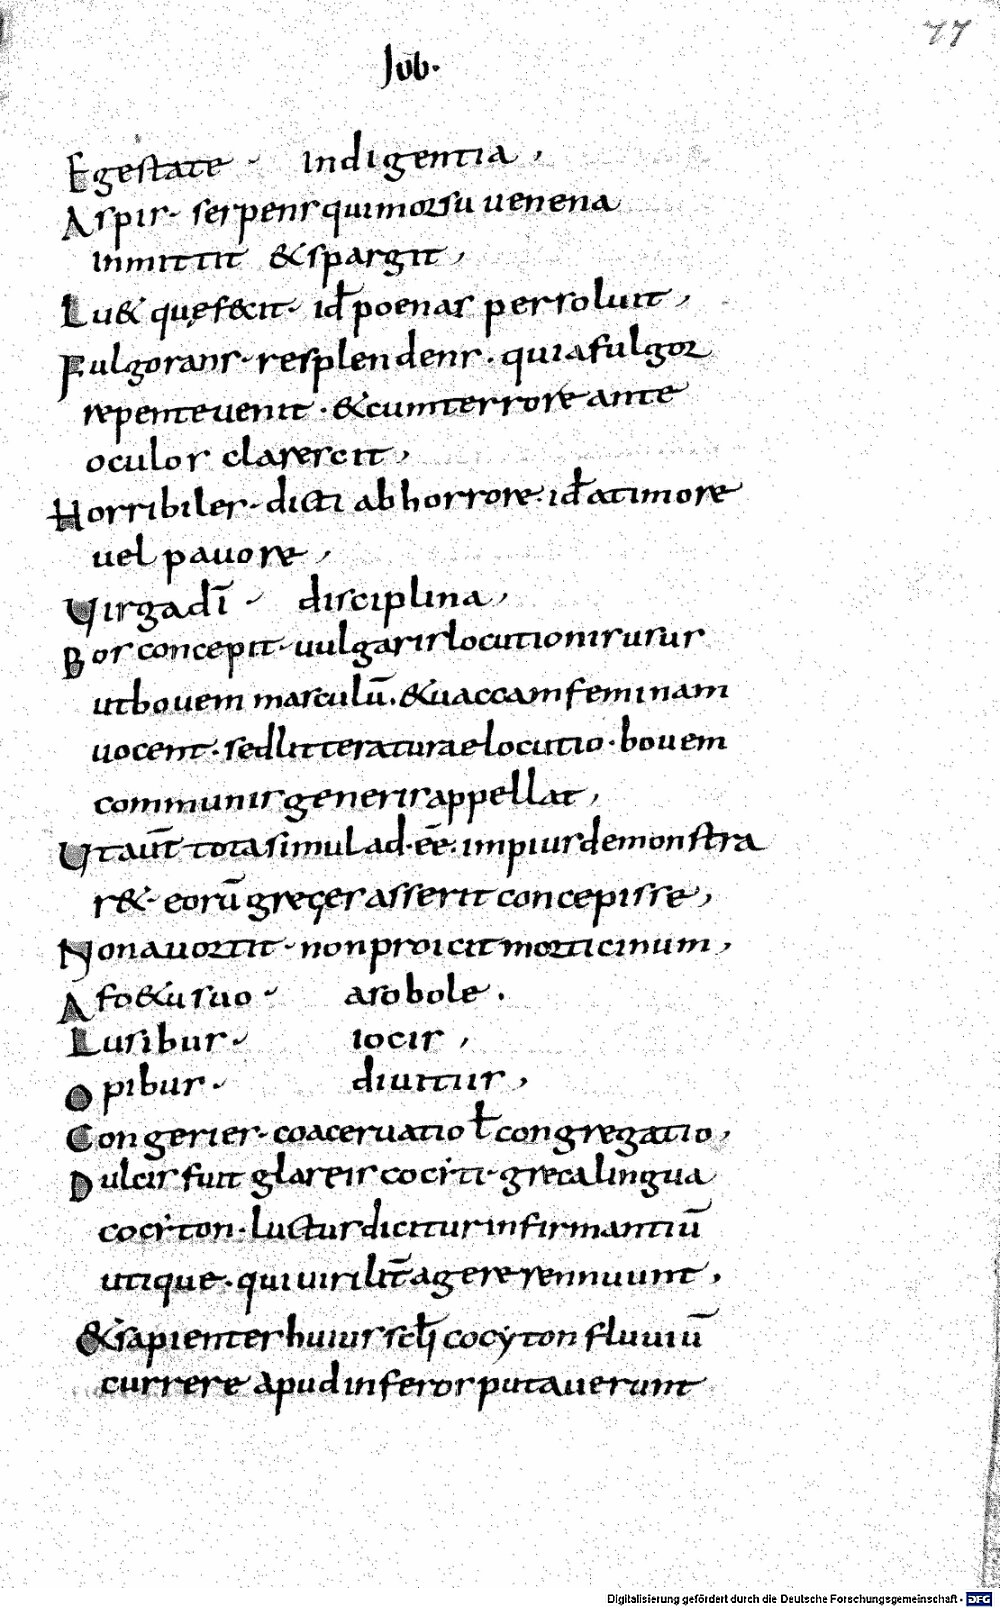 77
Job.
Egestate · Indigentia,
Aspis · serpens qui morsu uenena
inmittit & spargit,
Lu& quę fecit · id̄ poenas persoluit,
Fulgorans · resplendens · quia fulgor
repente uenit · & cum terrore ante
oculos clarescit,
Horribiles · dicti ab horrore · id̄ a timore
uel pauore,
Uirga dī · disciplina,
Bos concepit · uulgaris locutionis usus
ut bouem masculū · & uaccam feminam
uocent · sed litteraturae locutio · bouem
communis generis appellat,
Ut aut̄ tota simul ad · eē · impius demonstra
r& · eorū greges asserit concepisse,
Non auortit · non proicit morticinum,
A fo&u suo · a sobole.
Lusibus · iocis,
Opibus · diuitiis,
Congeries · coaceruatio ł congregatio,
Dulcis fuit glareis cociti · greca lingua
cociton · luctus dicitur infirmantiū
utique · qui uirilit̄ agere rennuunt,
& sapientes huius scłi cocyton fluuiū
currere apud inferos putauerunt
Digitalisierung gefördert durch die Deutsche Forschungsgemeinschaft - DFG